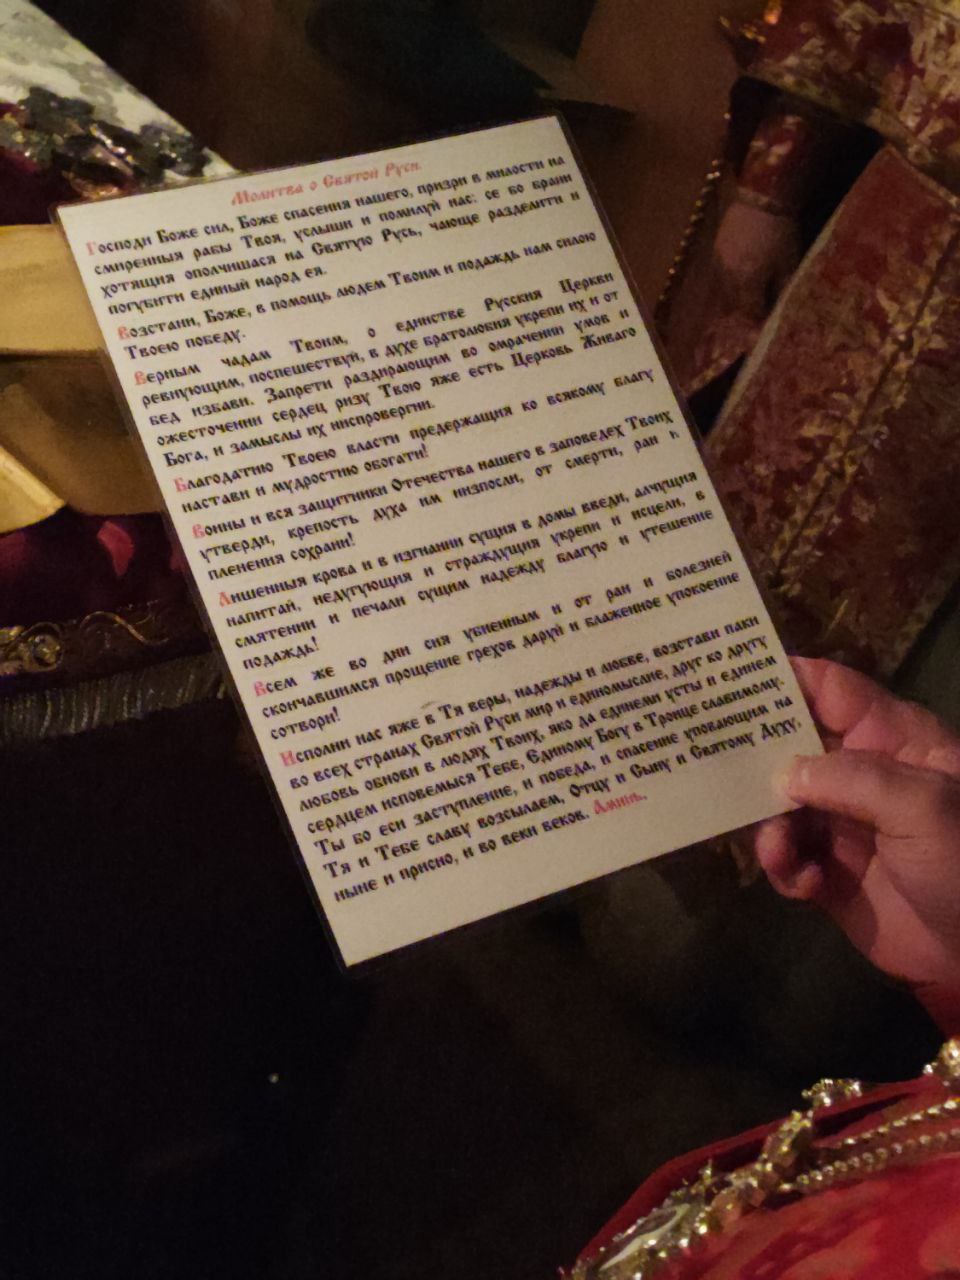 Молитва о Святой Руси.
Господи Боже сил, Боже спасения нашего, призри в милости на
смиренныя рабы Твоя, услыши и помилуй нас: се бо брани
хотящия ополчишася на Святую Русь, чающе разделити и
погубити единый народ ея.
Возстани, Боже, в помощь людем Твоим и подаждь нам силою
Твоею победу.
Верным чадам Твоим, о единстве Русския Церкви
ревнующим, поспешествуй, в духе братолюбия укрепи их и от
бед избави. Запрети раздирающим во омрачении умов и
ожесточении сердец ризу Твою яже есть Церковь Живаго
Бога, и замыслы их ниспровергни.
Благодатию Твоею власти предержащия ко всякому благу
настави и мудростию обогати!
Воины и вся защитники Отечества нашего в заповедех Твоих
утверди, крепость духа им низпосли, от смерти, ран и
пленения сохрани!
Лишенныя крова и в изгнании сущия в домы введи, алчущия
напитай, недугующия и страждущия укрепи и исцели, в
смятении и печали сущим надежду благую и утешение
подаждь!
Всем же во дни сия убиенным и от ран и болезней
скончавшимся прощение грехов даруй и блаженное упокоение
сотвори!
Исполни нас яже в Тя веры, надежды и любве, возстави паки
во всех странах Святой Руси мир и единомыслие, друг ко другу
любовь обнови в людях Твоих, яко да единеми усты и единем
сердцем исповемыся Тебе, Единому Богу в Троице славимому.
Ты бо еси заступление, и победа, и спасение уповающим на
Тя и Тебе славу возсылаем, Отцу и Сыну и Святому Духу,
ныне и присно, и во веки веков. Аминь.